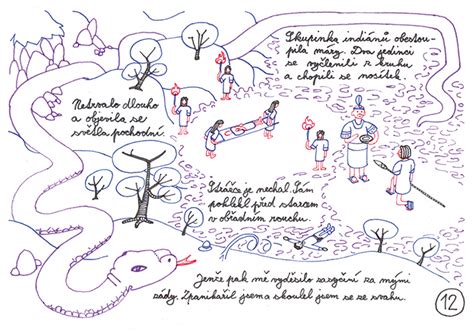 Netrvalo dlouho
a objevila se
světla pochodní.
Skupinka indiánů obestou-
pila máry. Dva jedinci
se vyčlenili z kruhu
a chopili se nosítek.
Strážce je nechal. Sám
poklekl před starcem
v obřadním rouchu.
Jenže pak mě vyděsilo zasyčení za mými
zády. Zpanikařil jsem a skoulel jsem se ze svahu.
12